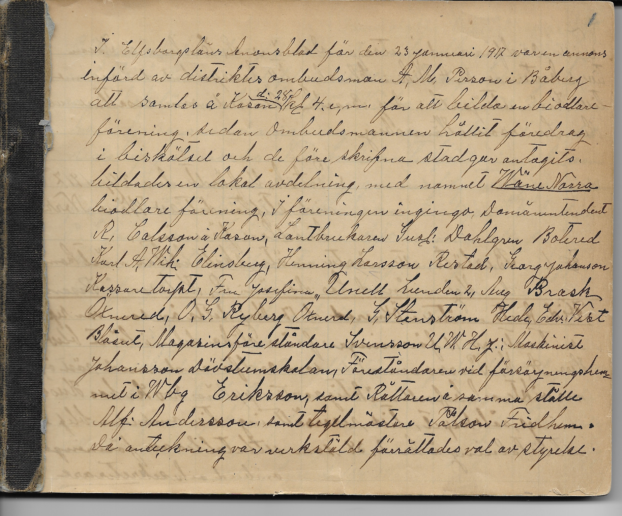 1
I. Elfsborgsläns Annonsblad för den 23 januari 1917 var en annons
införd av distriktsombudsman A. M. Person i Båberg
att samlas å Kåsen di 28/1 kl 4. e, m. för att bilda en biodlare-
förening, sedan Ombudsmannen hållit föredrag
i biskötsel och de före skrifna stadgar antagits.
bildades en lokal avdelning, med namnet Wäne Norra
biodlare förening, I föreningen ingingo, Domänintendent
R, Carlsson å Kåsen, Lantbrukaren Gust. Dahlgren Botered
Karl A, Elinsberg, Henning Larsson Restad, Georg Johanson
torpet, Fru Josefina Unell Lunden 2, Aug Brask
Oxnered, O, G, Ryberg Oxnered, G, Stenström Hede, Edv.
Blåsut, Magasinsföreståndare Svensson U, W. H, j: Maskinist
Johansson Dövstumskolan, Föreståndaren vid försörjningshem-
met i Wbg Eriksson, samt Rättaren å samma ställe
Alf: Andersson, samt tegelmästare Pålson Fridhem.
Då anteckning var verkstäld förrättades val av styrelse.